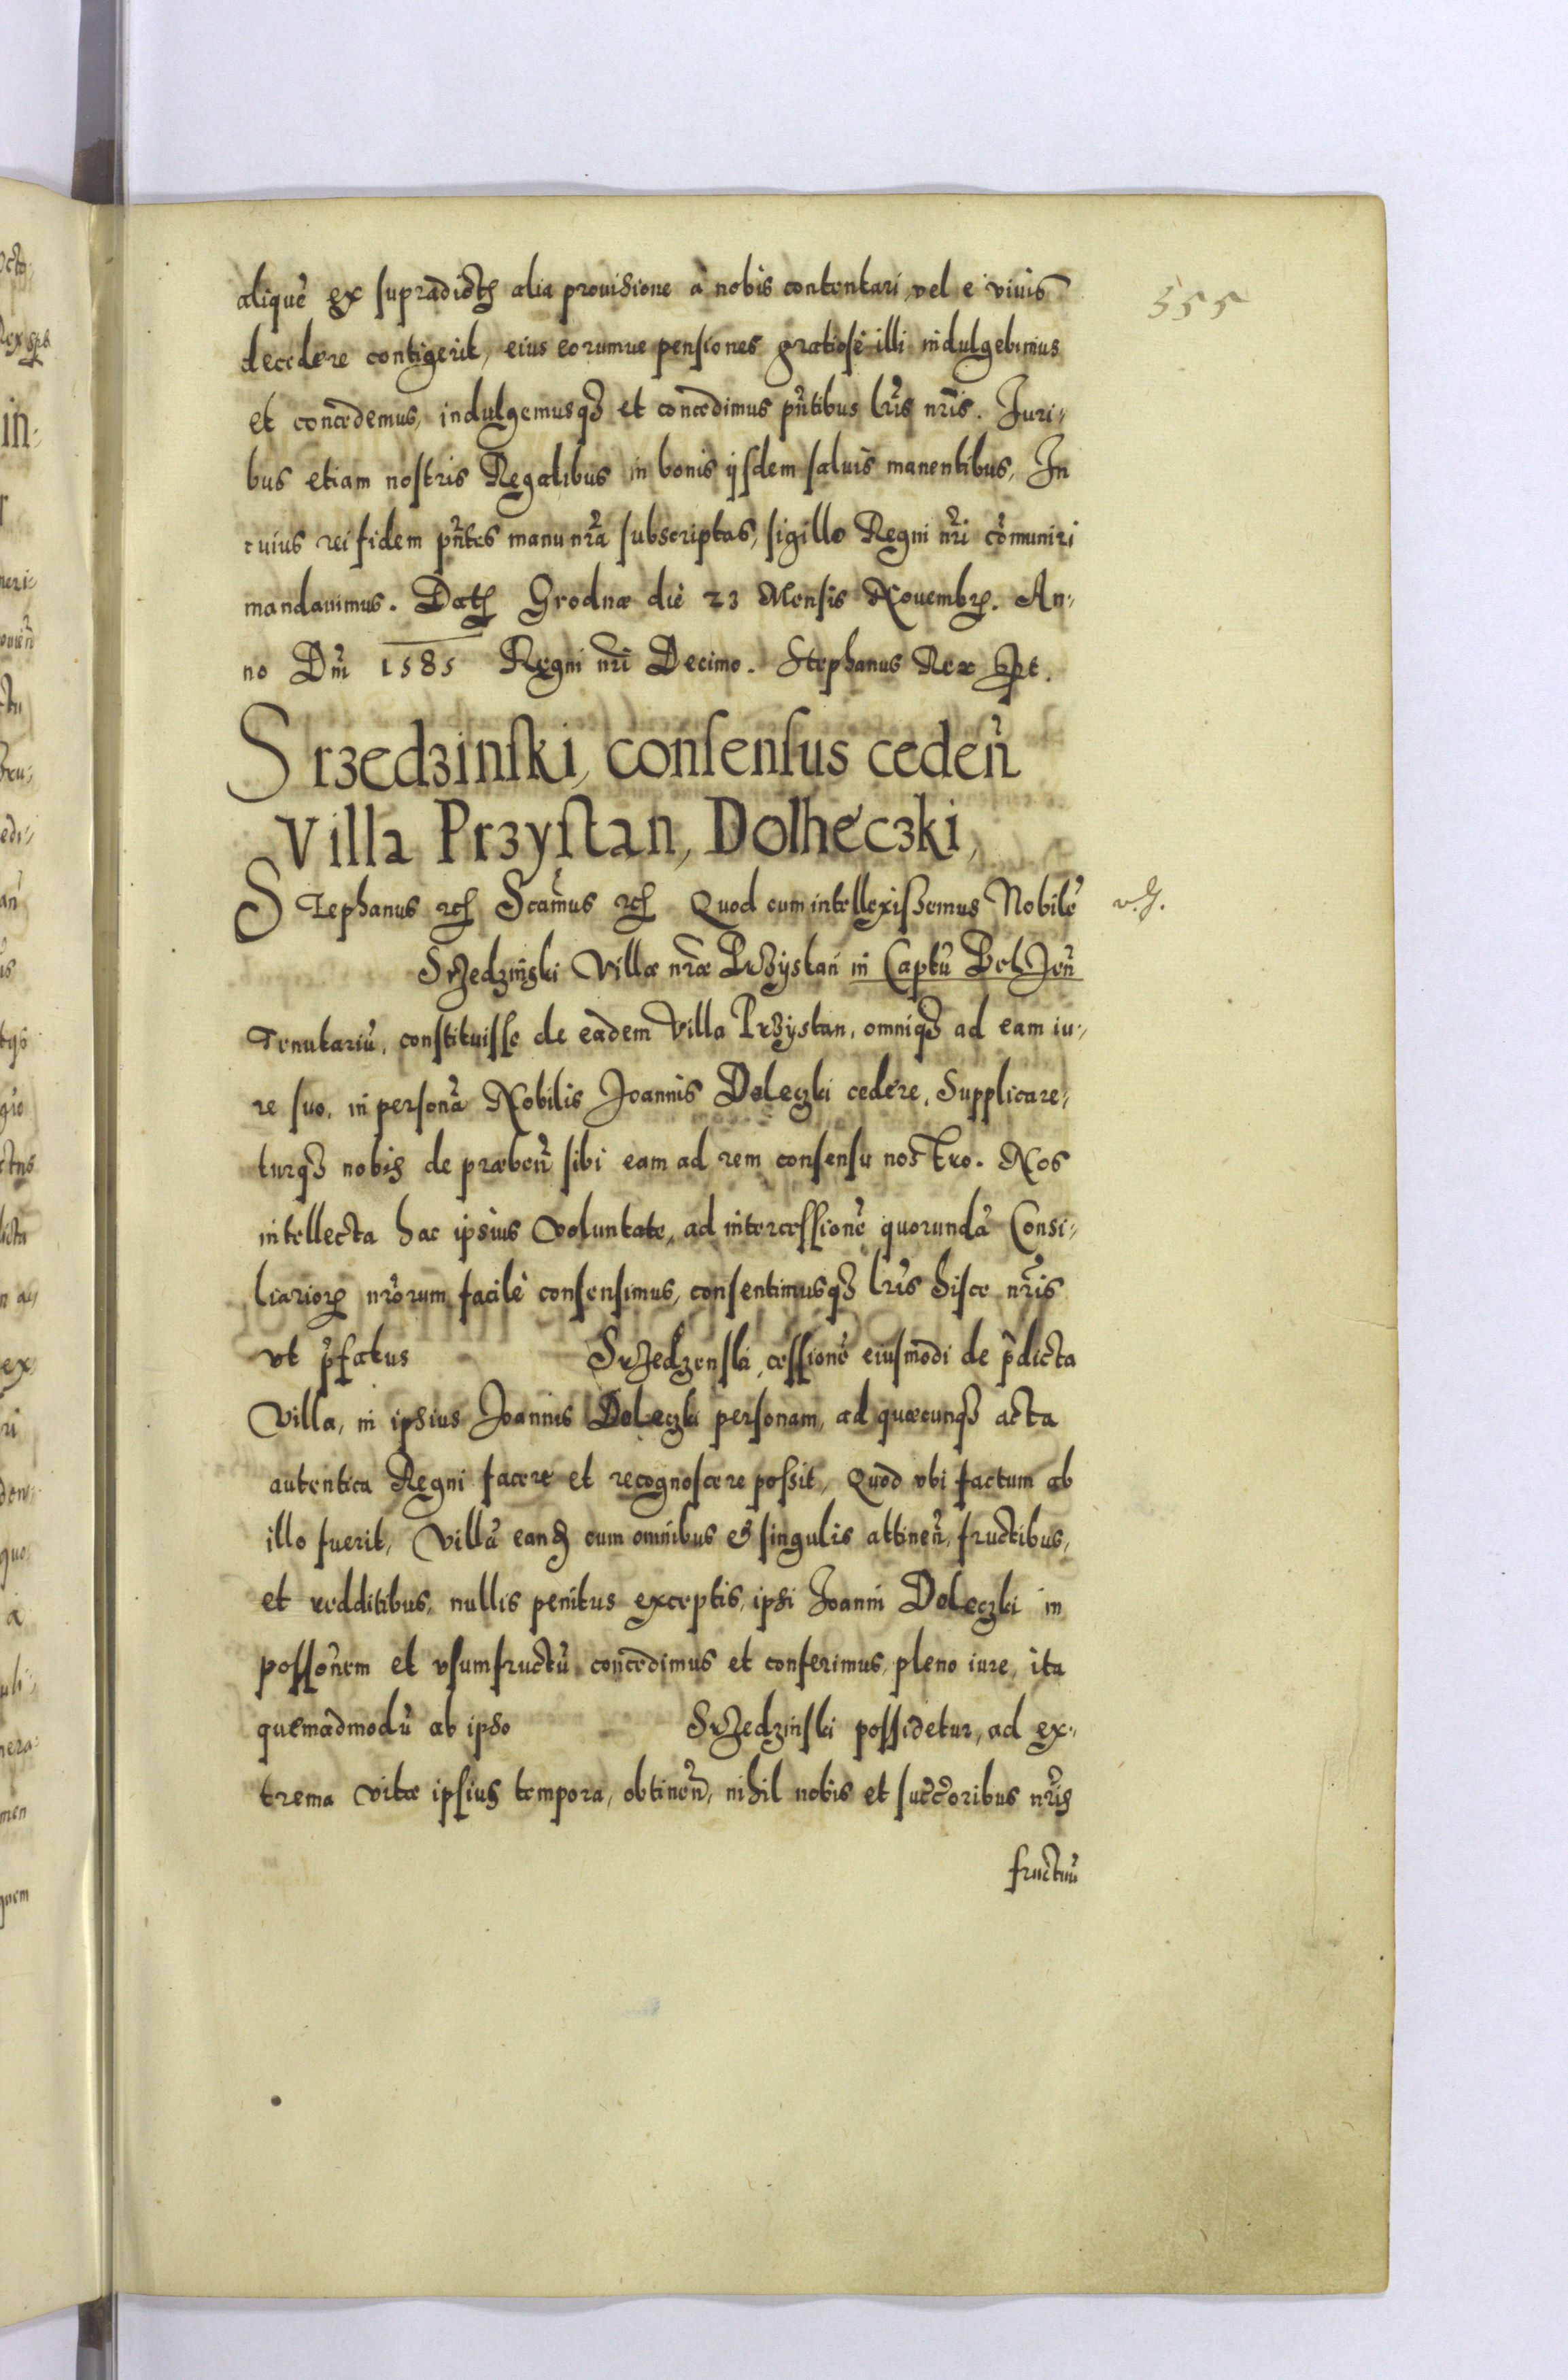 555
aliquē ex supradictꝭ alia prouisione à nobis contentari, vel e viuis
decedere contigerit, eius eorumue pensiones gratiosè illi indulgebimus
et concedemus, indulgemusqꝫ et concedimus pñtibus lrĩs nrĩs. Iuri⸗
bus etiam nostris Regalibus in bonis ijsdem saluis manentibus, In
cuius rei fidem pñtes manu nrã subscriptas, sigillo Regni nrĩ cõmuniri
mandauimus. Datꝭ Grodnæ die 23 Mensis Nouembrꝭ. An⸗
no Dnĩ 1585 Regni nrĩ Decimo. Stephanus Rex
Srzedzinski, consensus cedeñ
Villa Przystan, Dolheczki,
STephanus rcꝭ Scãmus rcꝭ Quod cum intellexissemus Nobilẽ
Srzedzinski Villæ nræ Przystań in Captũ
Tenutariũ, constituisse de eadem Villa Przystan, omniqꝫ ad eam iu⸗
re suo, in personã Nobilis Joannis Doleczki cedere, Supplicare⸗
turqꝫ nobis de præbeñ sibi eam ad rem consensu nostro. Nos
intellecta hac ipsius voluntate, ad intercessionẽ quorundã Consi⸗
liariorꝝ nrõrum facilè consensimus, consentimusqꝫ lrĩs hisce nrĩs
vt p̃fatus Srzedzenski, cessionẽ eiusmodi de p̃dicta
Villa, in ipsius Joannis Doleczki personam, ad quæcunqꝫ acta
autentica Regni facere et recognoscere possit, Quod vbi factum ab
illo fuerit, Villã eandꝫ cum omnibus & singulis attineñ, fructibus,
et redditibus, nullis penitus exceptis, ipsi Joanni Doleczki in
possõnem et vsumfructũ concedimus et conferimus, pleno iure, ita
quemadmodũ ab ipso Srzedzinski possidetur, ad ex⸗
trema vitæ ipsius tempora, obtineñ, nihil nobis et succ̃oribus nrĩs
fructuũ